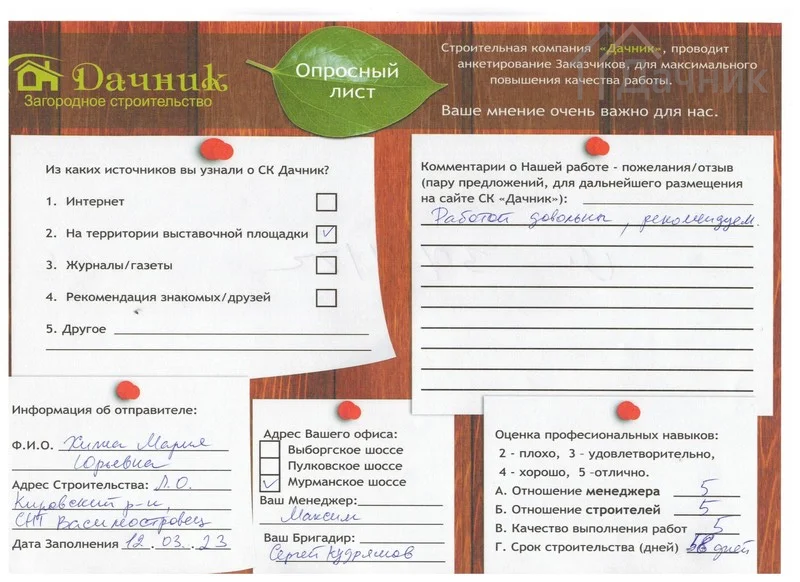 Дачник
Загородное строительство
Опросный
лист
Строительная компания «Дачник», проводит
анкетирование Заказчиков, для максимального
повышения качества работы.
Ваше мнение очень важно для нас.
Дачник
Из каких источников вы узнали о СК Дачник?
1. Интернет
2. На территории выставочной площадки
3. Журналы/газеты
4. Рекомендация знакомых/друзей
5. Другое
Комментарии о Нашей работе - пожелания/отзыв
(пару предложений, для дальнейшего размещения
на сайте СК «Дачник»):
Работой довольны, рекомендуем.
Информация об отправителе:
Ф.И.О. Мария
Юрьевна
Адрес Строительства: Л.О.
Кировский р-н,
СНТ Василеостровец
Дата Заполнения 12.03.23
Адрес Вашего офиса:
Выборгское шоссе
Пулковское шоссе
Мурманское шоссе
Ваш Менеджер:
Максим
Ваш Бригадир:
Сергей
Оценка професиональных навыков:
2 - плохо, 3 - удовлетворительно,
4 - хорошо, 5 -отлично.
А. Отношение менеджера 5
Б. Отношение строителей 5
В. Качество выполнения работ 5
Г. Срок строительства (дней) дней